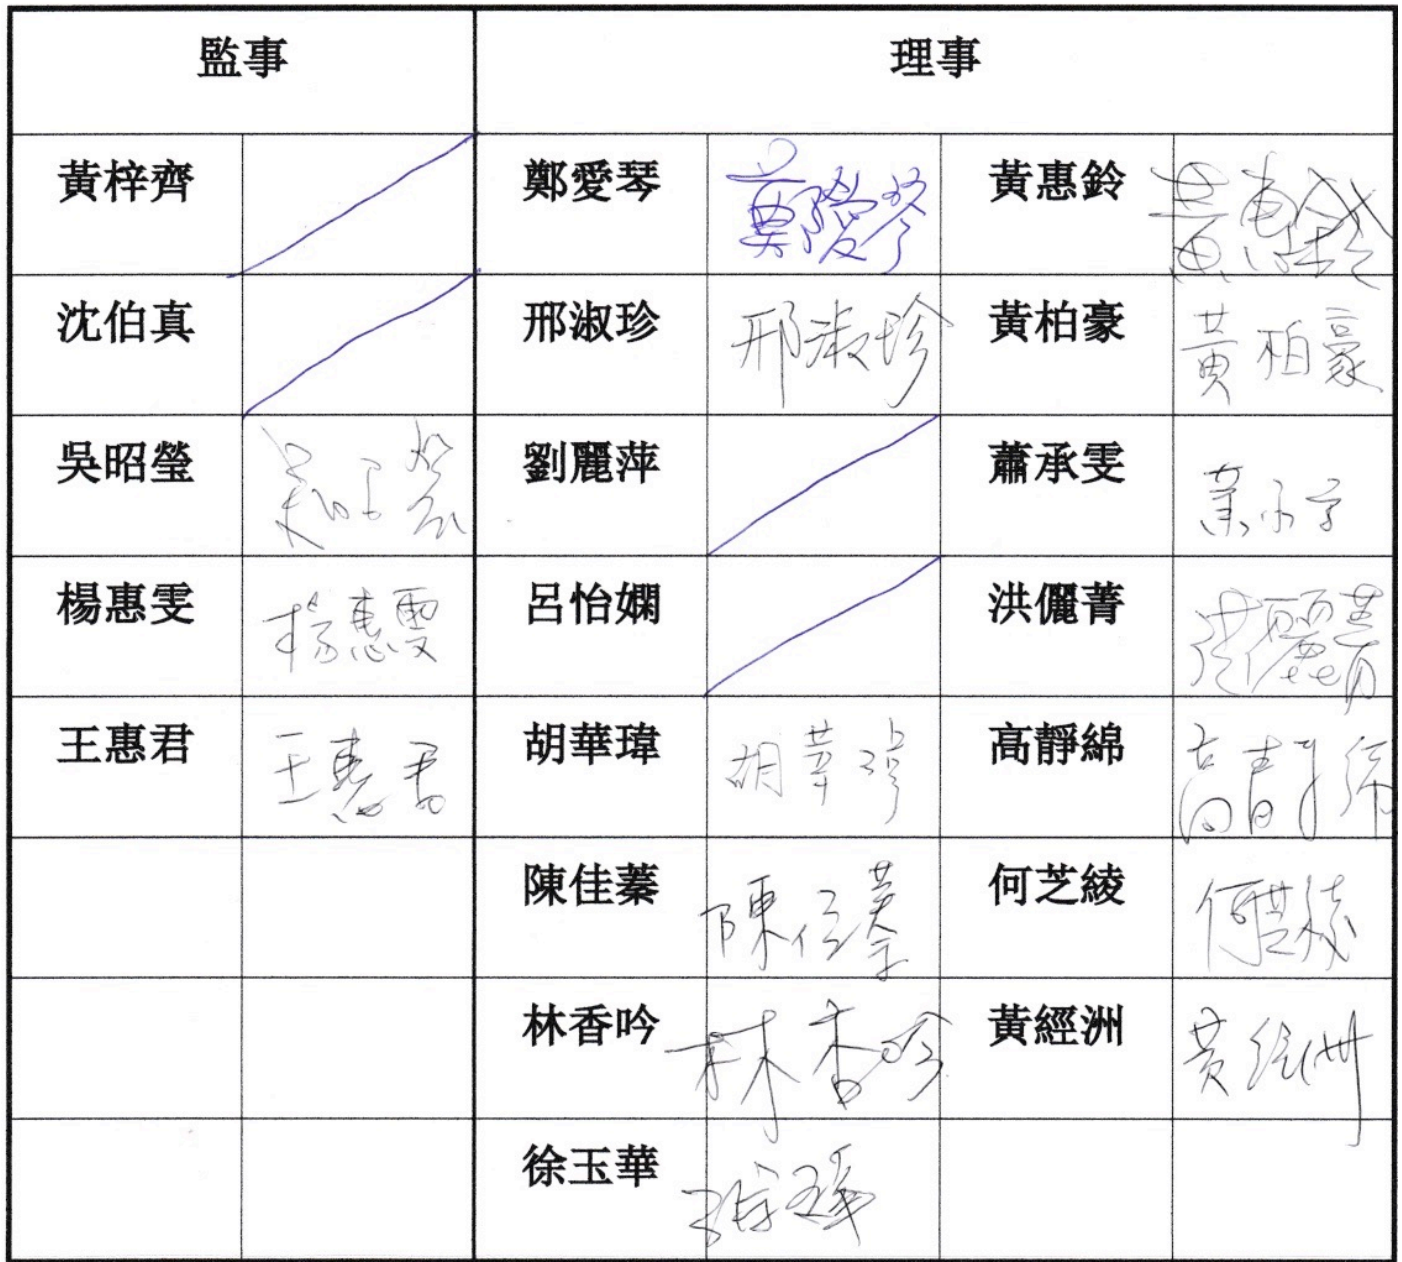 監事 理事
黃梓齊 鄭愛琴 鄭愛琴 黃惠鈴 黃惠鈴
沈伯真 邢淑珍 邢淑珍 黃柏豪 黃柏豪
吳昭瑩 吳昭瑩 劉麗萍 蕭承雯
楊惠雯 楊惠雯 呂怡嫻 洪儷菁 洪儷菁
王惠君 王惠君 胡華瑋 胡華瑋 高靜綿 高靜綿
陳佳蓁 陳佳蓁 何芝綾 何芝綾
林香吟 林香吟 黃經洲 黃經洲
徐玉華 徐玉華